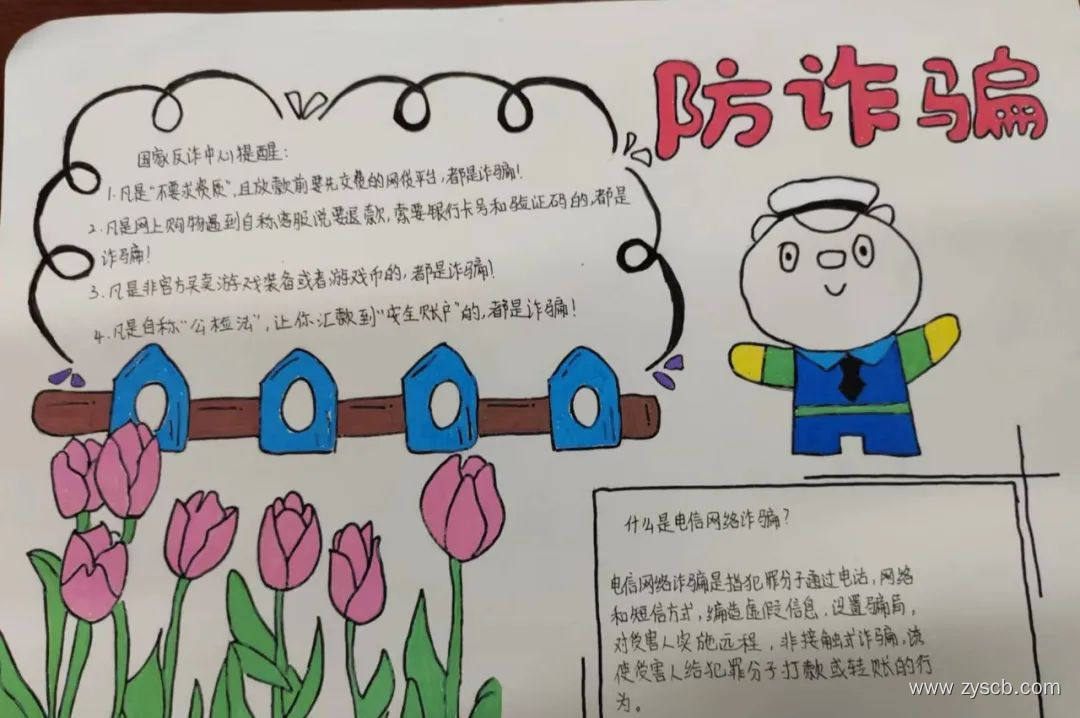 防诈骗
国家反诈中心提醒:
1.凡是“不要求资质”,且放款前要先交费的网贷平台,都是诈骗!
2.凡是网上购物遇到自称客服说要退款,索要银行卡号和验证码的,都是
诈骗!
3.凡是非官方买卖游戏装备或者游戏币的,都是诈骗!
4.凡是自称“公检法”,让你汇款到“安全账户”的,都是诈骗!
什么是电信网络诈骗?
电信网络诈骗是指犯罪分子通过电话,网络
和短信方式,编造虚假信息,设置骗局,
对受害人实施远程,非接触式诈骗,诱
使受害人给犯罪分子打款或转账的行
为。
www.zyscb.com